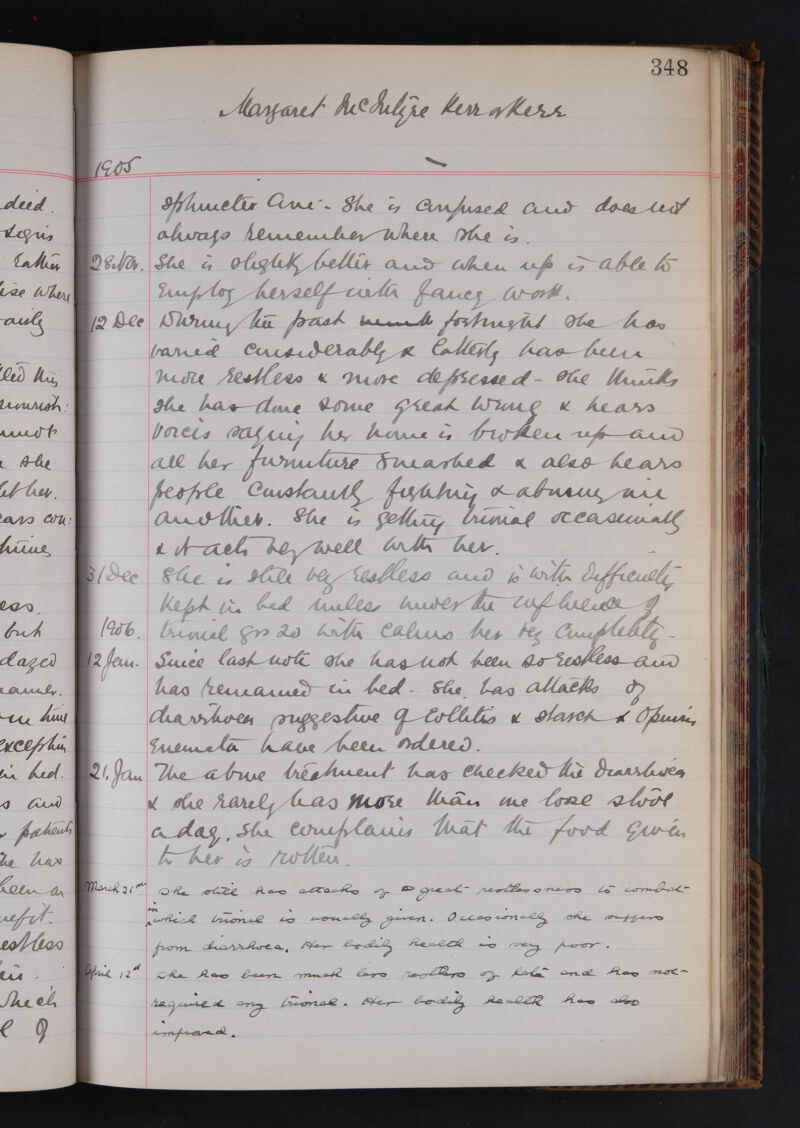 348
Margaret McIntyre Kerr or Kerr
1905
sphincter Ani. She is confused and does not
always remember where she is.
28 Nov. She is slightly better and when up is able to
employ herself with fancy work.
12 Dec During the past fortnight she has
varied considerably & latterly has been
more restless & more depressed - she thinks
she has done some great wrong & hears
voices saying her home is broken up and
all her furniture smashed & also hears
people constantly fighting & abusing one
another. She is getting trional occasionally
& it acts very well with her.
31 Dec She is still very restless and is with difficulty
kept in bed unless under the influence of
1906. trional grs 20 with calms her very completely -
12 Jan. Since last note she has not been so restless and
has remained in bed - She has attacks of
diarrhoea suggestive of Collitis & starch & Opium
Enemata have been ordered.
21. Jan The above treatment has checked the diarrhoea
& she rarely has more than one loose stool
a day. She complains that the food given
to her is rotten.
March 21st She still has attacks of great restlessness to combat
which trional is usually given. Occasionally she suffers
from diarrhoea. Her bodily health is very poor.
April 12th She has been much less restless of late and has not
required any trional. Her bodily health has also
improved.
died.
signs
rather
where
she
her.
but
dazed
time
in bed.
and
patients
he has
been an
restless
which
of